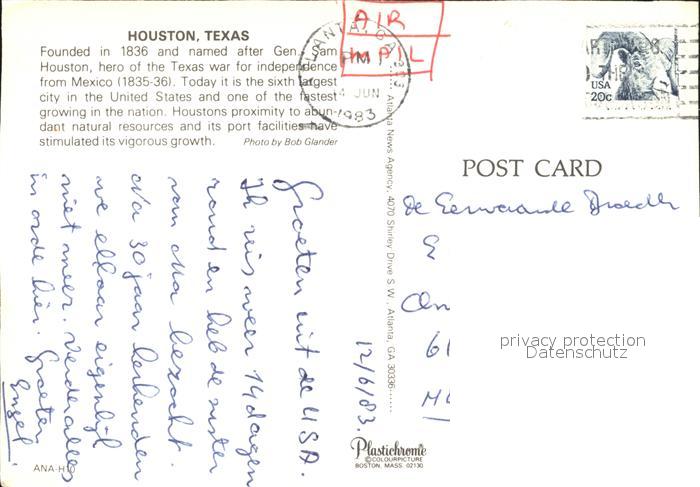 HOUSTON, TEXAS
Founded in 1836 and named after Gen. Sam
Houston, hero of the Texas war for independence
from Mexico (1835-36). Today it is the sixth largest
city in the United States and one of the fastest
growing in the nation. Houstons proximity to abun-
dant natural resources and its port facilities have
stimulated its vigorous growth. Photo by Bob Glander
AIR
MAIL
ATLANTA, GA 303
PM
4 JUN
1983
USA
20c
POST CARD
De Eerwaarde Broeder
E
61
privacy protection
Datenschutz
Atlanta News Agency, 4070 Shirley Drive S.W., Atlanta, GA 30336
12/6/83.
Groeten uit de USA.
Ik reis weer 14 dagen
rond en heb de zuster
van oka bezocht.
Na 30 jaar herkenden
we elkaar eigenlijk
niet meer. Verder alles
in orde hier. Groeten
Plastichrome
©COLOURPICTURE
BOSTON, MASS. 02130
ANA-H10